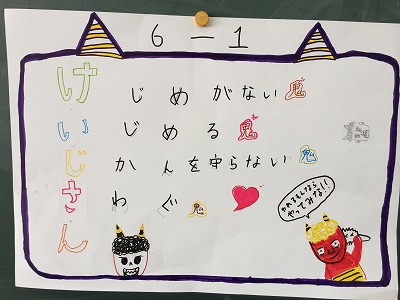 6－1
けじめがない鬼
いじめる鬼
じかんを守らない鬼
さわぐ鬼
ん
かてるもんなら
やってみな!!